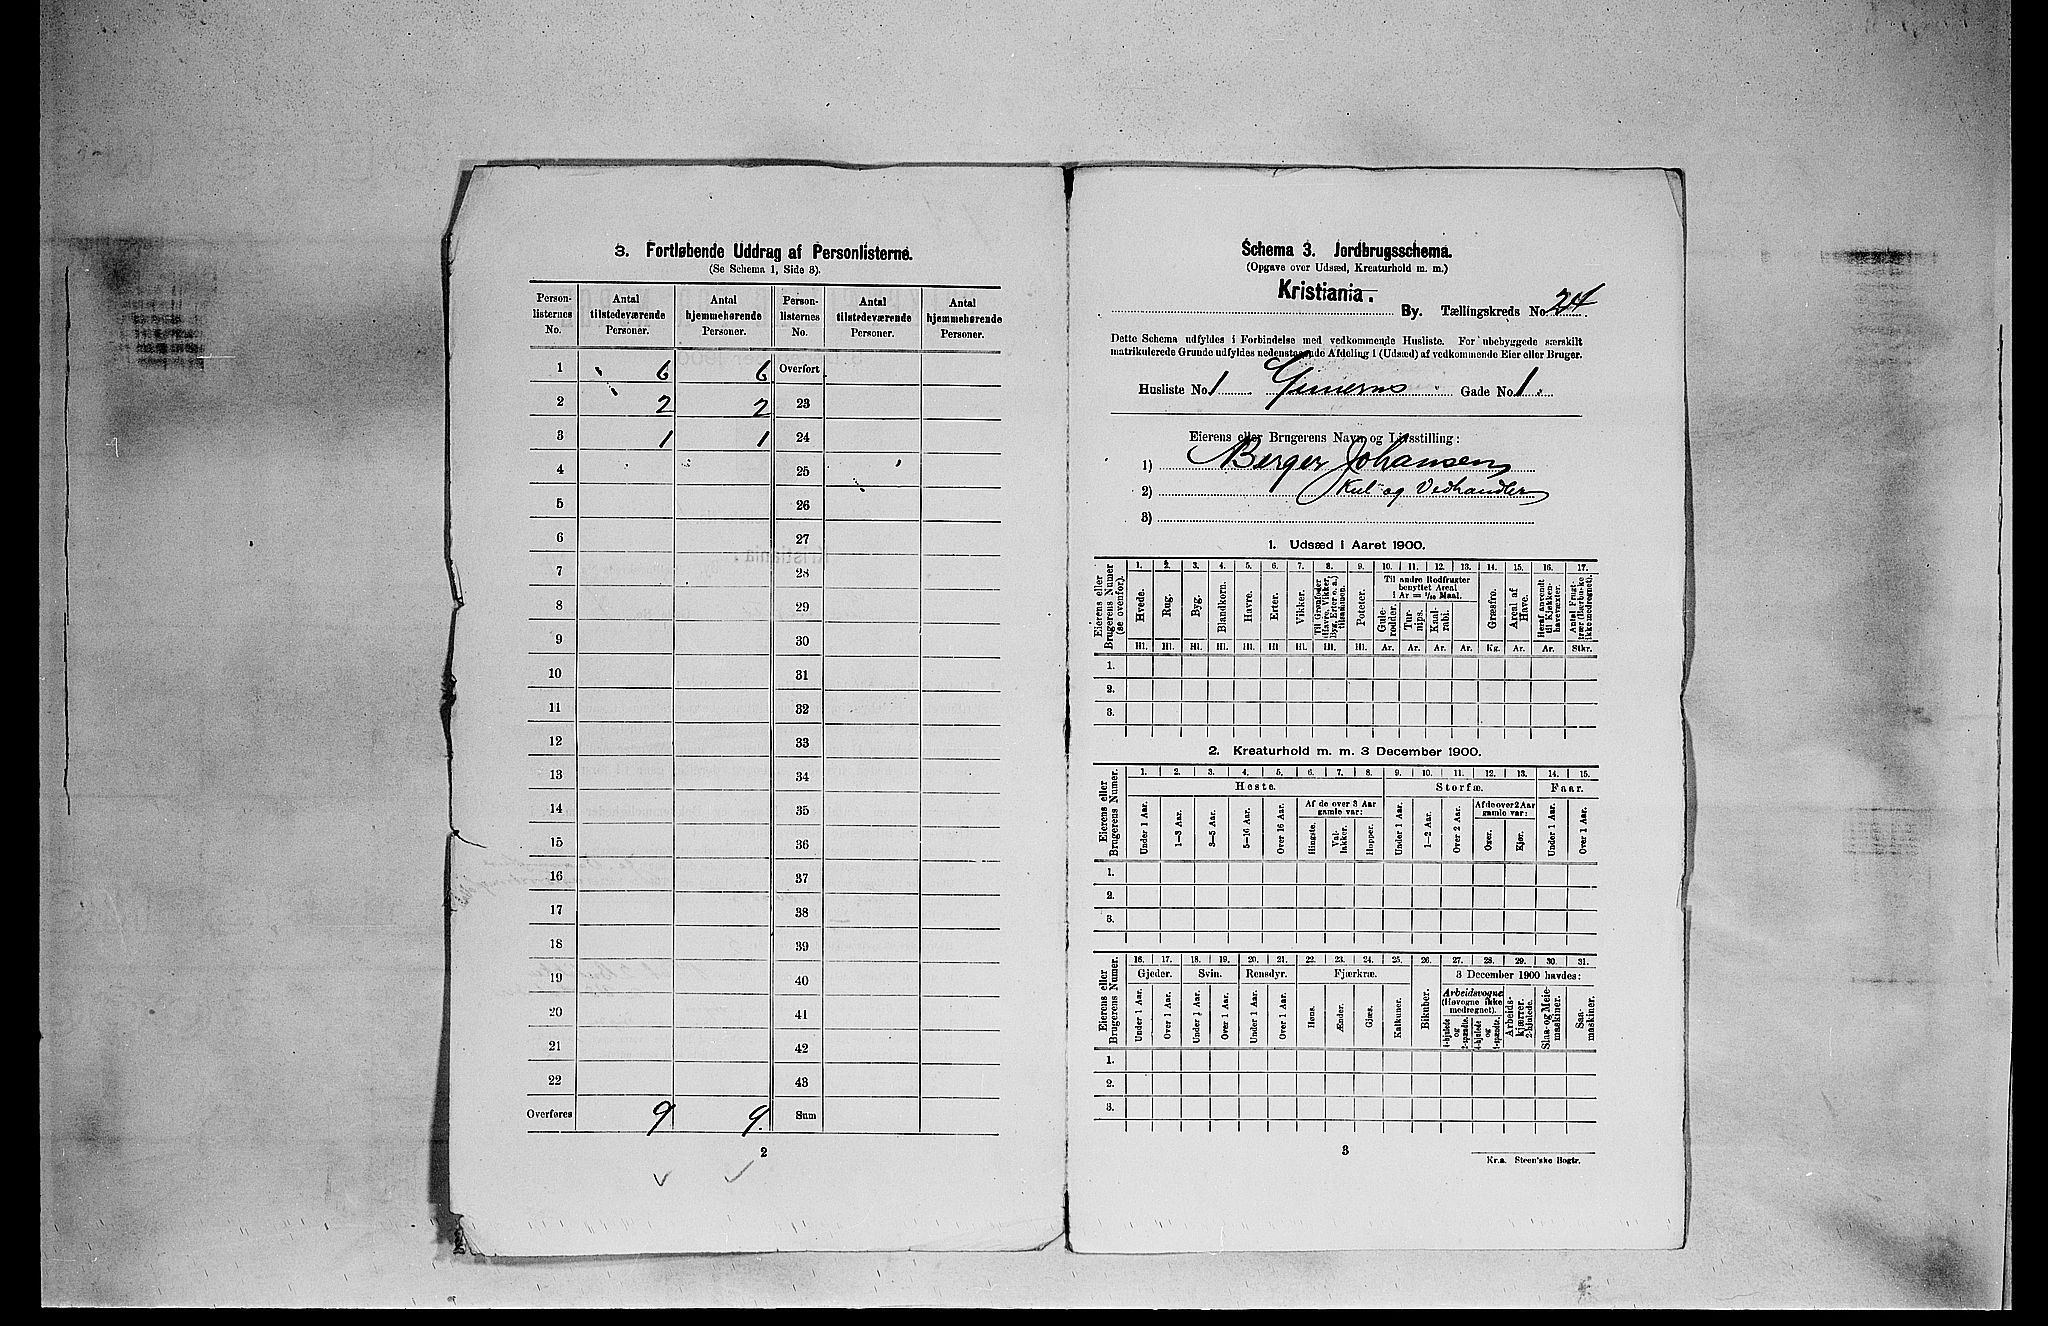 3. Fortløbende Uddrag af Personlisterne.
(Se Schema 1, Side 3).
Person-listernes No. | Antal tilstedeværende Personer. | Antal hjemmehørende Personer. | Person-listernes No. | Antal tilstedeværende Personer. | Antal hjemmehørende Personer.
1 | 6 | 6 | Overført
2 | 2 | 2 | 23
3 | 1 | 1 | 24
4 | 25
5 | 26
6 | 27
7 | 28
8 | 29
9 | 30
10 | 31
11 | 32
12 | 33
13 | 34
14 | 35
15 | 36
16 | 37
17 | 38
18 | 39
19 | 40
20 | 41
21 | 42
22 | 43
Overføres | 9 | 9. | Sum
2
Schema 3. Jordbrugsschema.
(Opgave over Udsæd, Kreaturhold m. m.)
Kristiania.
By. Tællingskreds No. 24
Dette Schema udfyldes i Forbindelse med vedkommende Husliste. For ubebyggede særskilt
matrikulerede Grunde udfyldes nedenstaaende Afdeling 1 (Udsæd) af vedkommende Eier eller Bruger.
Husliste No. 1 Gade No. 1.
Eierens eller Brugerens Navn og Livsstilling:
1) Berger Johansen
2) Kul- og Vedhandler
3)
1. Udsæd i Aaret 1900.
1. 2. 3. 4. 5. 6. 7. 8. 9. 10. 11. 12. 13. 14. 15. 16. 17.
Til andre Rodfrugter benyttet Areal i Ar = 1/10 Maal.
Eierens eller Brugerens Numer (se ovenfor). | Hvede. | Rug. | Byg. | Blandkorn. | Havre. | Erter. | Vikker. | Til Grønfoder (Havre, Vikker, Byg, Erter o. a.) tilsammen. | Poteter. | Gulerødder. | Turnips. | Kaalrabi. | Græsfrø. | Areal af Have. | Heraf anvendt til Kjøkkenhavevæxter. | Antal Frugttrær (Bærbuske ikke medregnet).
Hl. Hl. Hl. Hl. Hl. Hl. Hl. Hl. Hl. Ar. Ar. Ar. Ar. Kg. Ar. Ar. Stkr.
1.
2.
3.
2. Kreaturhold m. m. 3 December 1900.
1. 2. 3. 4. 5. 6. 7. 8. 9. 10. 11. 12. 13. 14. 15.
Heste. | Storfæ. | Faar.
Af de over 3 Aar gamle var: | Af de over 2 Aar gamle var:
Eierens eller Brugerens Numer. | Under 1 Aar. | 1—3 Aar. | 3—5 Aar. | 5—16 Aar. | Over 16 Aar. | Hingste. | Vallakker. | Hopper. | Under 1 Aar. | 1—2 Aar. | Over 2 Aar. | Oxer. | Kjør. | Under 1 Aar. | Over 1 Aar.
1.
2.
3.
16. 17. 18. 19. 20. 21. 22. 23. 24. 25. 26. 27. 28. 29. 30. 31.
Gjeder. | Svin. | Rensdyr. | Fjærkræ. | 3 December 1900 havdes:
Arbeidsvogne (Høvogne ikke medregnet).
Eierens eller Brugerens Numer. | Under 1 Aar. | Over 1 Aar. | Under 1 Aar. | Over 1 Aar. | Under 1 Aar. | Over 1 Aar. | Høns. | Ænder. | Gjæs. | Kalkuner. | Bikuber. | 4-hjulede og 2-spændte. | 4-hjulede og 1-spændte. | Arbeidskjærrer. 2-hjulede. | Slaa- og Meiemaskiner. | Saamaskiner.
1.
2.
3.
3
Kr.a. Steen'ske Bogtr.